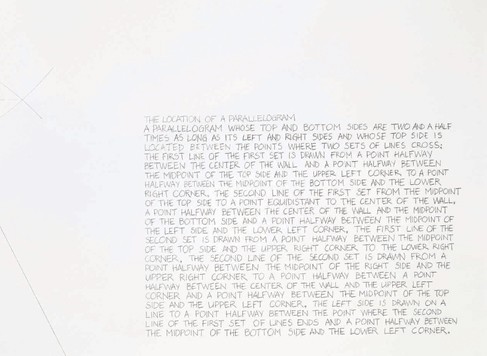 THE LOCATION OF A PARALLELOGRAM
A PARALLELOGRAM WHOSE TOP AND BOTTOM SIDES ARE TWO AND A HALF
TIMES AS LONG AS ITS LEFT AND RIGHT SIDES AND WHOSE TOP SIDE IS
LOCATED BETWEEN THE POINTS WHERE TWO SETS OF LINES CROSS;
THE FIRST LINE OF THE FIRST SET IS DRAWN FROM A POINT HALFWAY
BETWEEN THE CENTER OF THE WALL AND A POINT HALFWAY BETWEEN
THE MIDPOINT OF THE TOP SIDE AND THE UPPER LEFT CORNER TO A POINT
HALFWAY BETWEEN THE MIDPOINT OF THE BOTTOM SIDE AND THE LOWER
RIGHT CORNER, THE SECOND LINE OF THE FIRST SET FROM THE MIDPOINT
OF THE TOP SIDE TO A POINT EQUIDISTANT TO THE CENTER OF THE WALL,
A POINT HALFWAY BETWEEN THE CENTER OF THE WALL AND THE MIDPOINT
OF THE BOTTOM SIDE AND A POINT HALFWAY BETWEEN THE MIDPOINT OF
THE LEFT SIDE AND THE LOWER LEFT CORNER, THE FIRST LINE OF THE
SECOND SET IS DRAWN FROM A POINT HALFWAY BETWEEN THE MIDPOINT
OF THE TOP SIDE AND THE UPPER RIGHT CORNER TO THE LOWER RIGHT
CORNER, THE SECOND LINE OF THE SECOND SET IS DRAWN FROM A
POINT HALFWAY BETWEEN THE MIDPOINT OF THE RIGHT SIDE AND THE
UPPER RIGHT CORNER TO A POINT HALFWAY BETWEEN A POINT
HALFWAY BETWEEN THE CENTER OF THE WALL AND THE UPPER LEFT
CORNER AND A POINT HALFWAY BETWEEN THE MIDPOINT OF THE TOP
SIDE AND THE UPPER LEFT CORNER. THE LEFT SIDE IS DRAWN ON A
LINE TO A POINT HALFWAY BETWEEN THE POINT WHERE THE SECOND
LINE OF THE FIRST SET OF LINES ENDS AND A POINT HALFWAY BETWEEN
THE MIDPOINT OF THE BOTTOM SIDE AND THE LOWER LEFT CORNER.